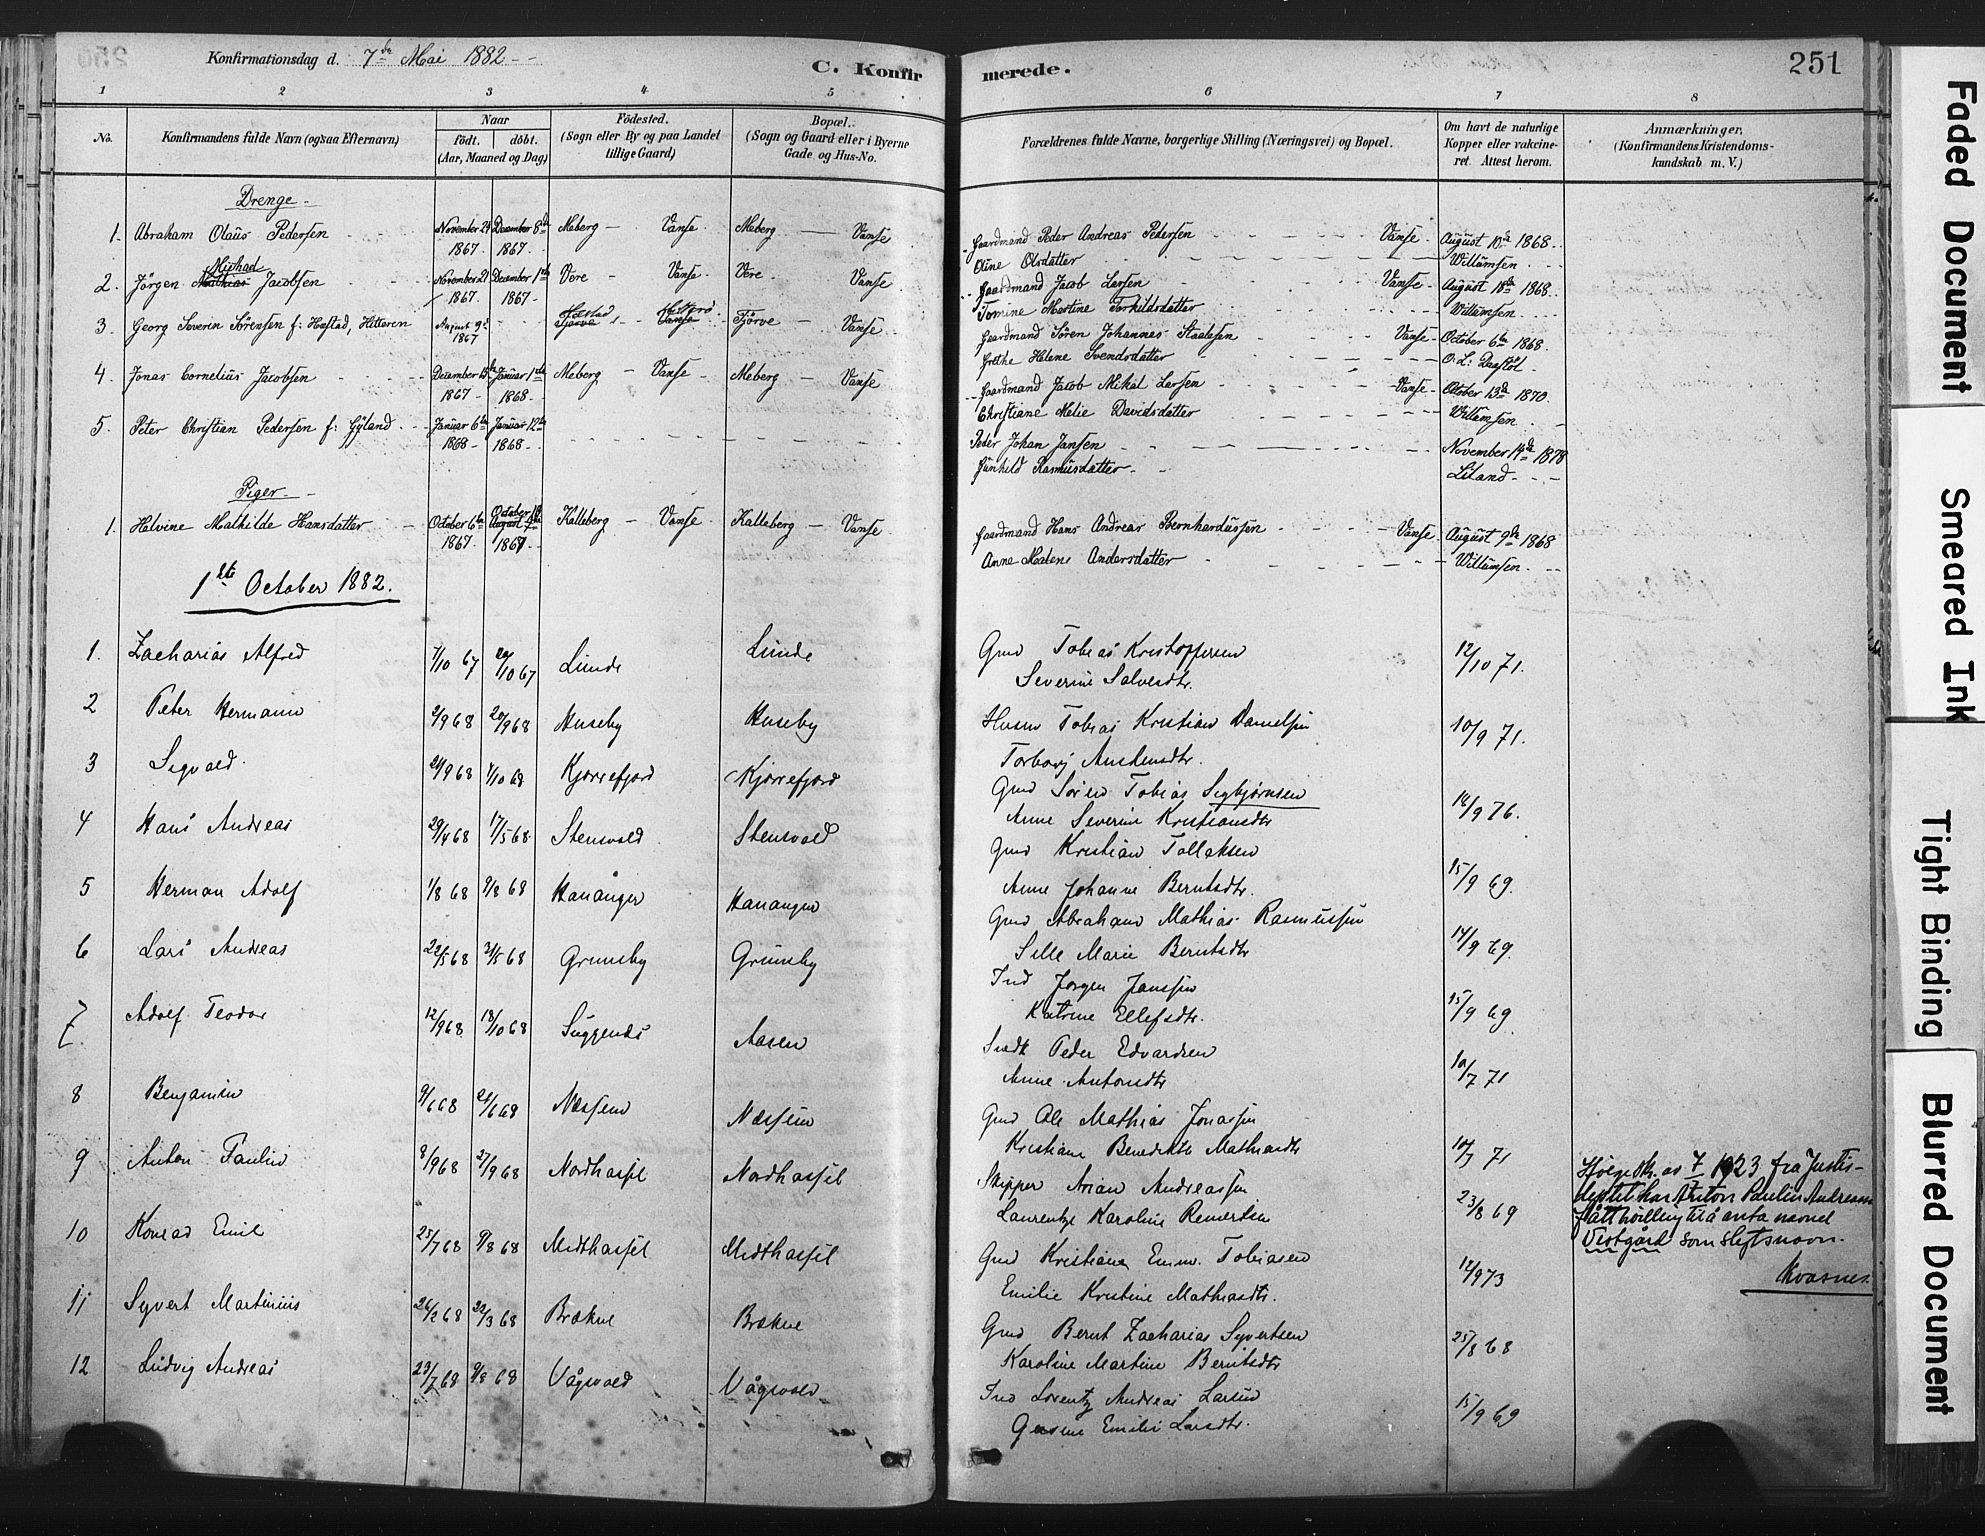 Konfirmationsdag d. 7de Mai 1882
C. Konfirmerede.
251
1 2 3 4 5 6 7 8
No.
Konfirmandens fulde Navn (ogsaa Efternavn)
Naar
födt. döbt.
(Aar, Maaned og Dag)
Födested.
(Sogn eller By og paa Landet
tillige Gaard)
Bopæl.
(Sogn og Gaard eller i Byerne
Gade og Hus-No.
Forældrenes fulde Navne, borgerlige Stilling (Næringsvei) og Bopæl.
Om havt de naturlige
Kopper eller vakcine-
ret. Attest herom.
Anmærkninger.
(Konfirmandens Kristendoms-
kundskab m. V.)
Drenge
1. Abraham Olaüs Pedersen November 1867 December 8de 1867 Meberg Vanse Meberg Vanse Gaardmand Peder Andreas Pedersen Vanse August 10de 1868
Oline Olsdatter Willumsen
2. Jörgen Mathias Jacobsen November 21 1867 December 1ste 1867 Vere Vanse Vere Vanse Gaardmand Jacob Larsen Vanse August 18de 1868
Tomine Martine Torkildsdatter Willumsen
3. Georg Severin Sörensen f: Hastad, Hitterön August 9de 1867 Tjörve Vanse Tjörve Vanse Gaardmand Sören Johannes Staalesen Vanse October 6te 1868
Grethe Helene Svendsdatter
4. Jonas Cornelius Jacobsen December 1867 Januar 1ste 1868 Meberg Vanse Meberg Vanse Gaardmand Jacob Mikal Larsen Vanse October 13de 1870
Christiane Malie Davidsdatter Willumsen
5. Peter Christian Pedersen f: Gyland Januar 6te 1868 Januar 12te 1868 Peder Johan Jansen November 14de 1878
Gunhild Rasmusdatter
Piger
1. Helvine Mathilde Hansdatter October 6te 1867 October August 1867 Kalleberg Vanse Kalleberg Vanse Gaardmand Hans Andreas Bernhardussen Vanse August 9de 1868
Anne Malene Andersdatter Willumsen
1ste October 1882.
1. Zacharias Alfred 7/10 67 20/10 67 Lunde Lunde Gmd Tobias Kristoffersen 12/10 71.
Severine Salvesdtr.
2 Peter Hermann 2/9 68 20/9 68 Huseby Huseby Husm Tobias Kristian Danielsen 10/9 71.
Torborg
3 Sigvald 24/9 68 Kjørrefjord Kjørrefjord Gmd Søren Tobias Sigbjørnsen 18/9 76.
Anne Severine Kristiansdtr
4 Hans Andreas 29/4 68 17/5 68 Stensvold Stensvold Gmd Kristian Tollaksen 15/9 69.
Anne Johanne Berntsdtr.
5 Herman Adolf 1/8 68 9/8 68 Hananger Hananger Gmd Abraham Mathias Rasmussen 14/9 69.
Sille Marie Berntsdtr
6 Lars Andreas 22/5 68 31/5 68 Grunsby Grunsby Ind Jørgen Janssen 15/9 69
Katrine Ellefsdtr.
7. Adolf Teodor 12/9 68 18/10 68 Aasen Peder Edvardsen 10/7 71
Anne Antonsdtr
8 Benjamin 9/6 68 21/6 68 Næssem Næssem Gmd Ole Mathias Jonassen 10/7 71
Kristiane Benedikte Mathiasdtr
9 Anton Paulin 8/9 68 27/9 68 Nordhassel Nordhassel Skipper Arian Andreassen 23/8 69
Laurentze Karoline Reinertsen
Ifølge sk. av 7/7 1923 fra Justis-
deptet har Anton Paulin Andreassen
fått bevilling til å anta navnet
Vestgård som slektsnavn.
Kvasnes
10 Konrad Emil 25/7 68 9/8 68 Midthassel Midthassel Gmd Kristian Eman. Tobiasen 12/9 73
Emilie Kristine Mathiasdtr.
11 Syvert Martinius 26/2 68 22/3 68 Brækne Brækne Gmd Bernt Zacharias Syvertsen 25/8 68
Karoline Martine Berntsdtr
12 Ludvig Andreas 23/7 68 9/8 68 Vågsvold Vågsvold Ind Lorentz Andreas Larsen 15/9 69
Gusine Emilie Larsdtr.
Faded Document
Smeared Ink
Tight Binding
Blurred Document